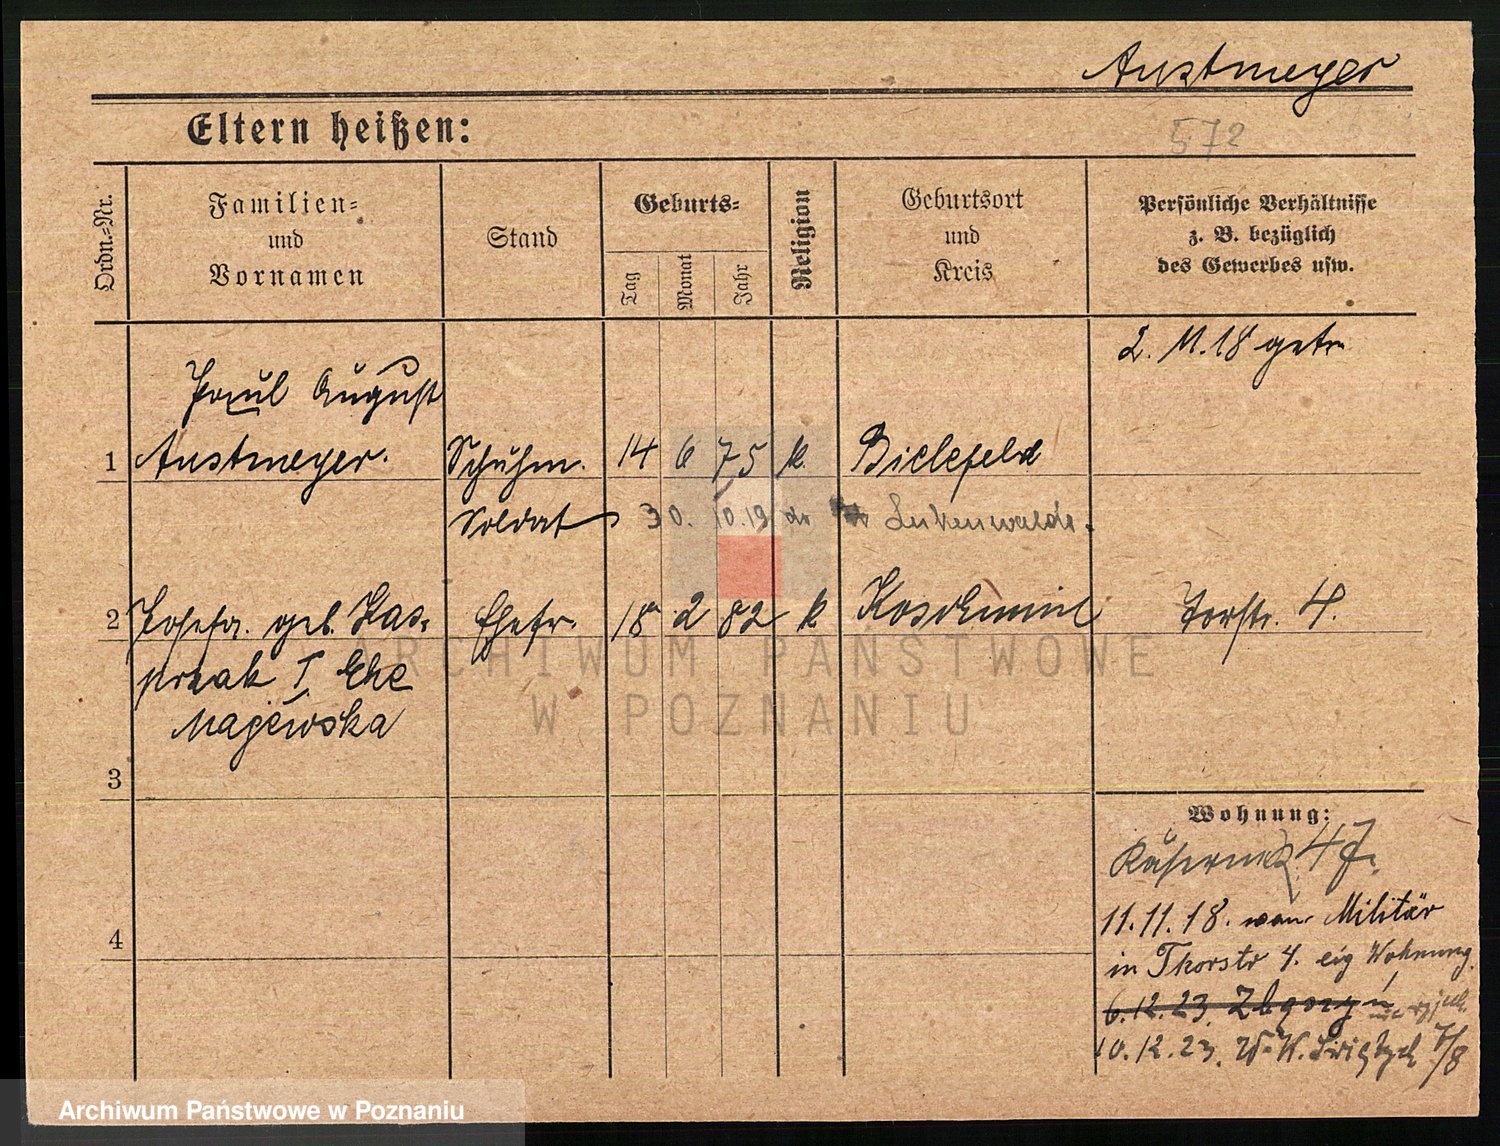 Austmeyer
Eltern heißen:
572
Ordn.-Nr.
Familien-
und
Vornamen
Stand
Geburts-
Tag
Monat
Jahr
Religion
Geburtsort
und
Kreis
Persönliche Verhältnisse
z. B. bezüglich
des Gewerbes usw.
2. 11. 18 getr
Paul August
1 Austmeyer. Schuhm. 14 6 75 k Bielefeld
Soldat 30. 10.19 Lukenwalde.
2 Josefa geb. Kas- Ehefr. 18 2 82 k Koschmin Torstr. 4.
przak I Ehe
Majewska
3
Wohnung:
47
11.11.18. vom Militär
4
in Thorstr 4. eig Wohnung.
6.12.23. Zbąszyń
10.12.23. W-W. 7/8
ARCHIWUM PAŃSTWOWE
W POZNANIU
Archiwum Państwowe w Poznaniu